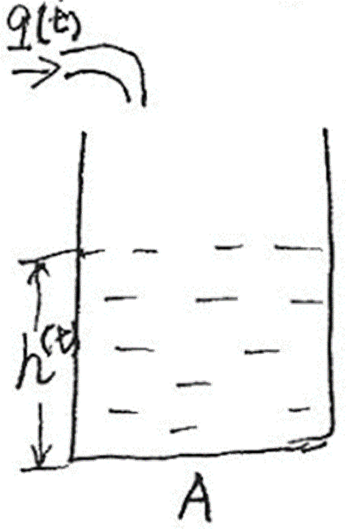 q(t)
h(t)
A